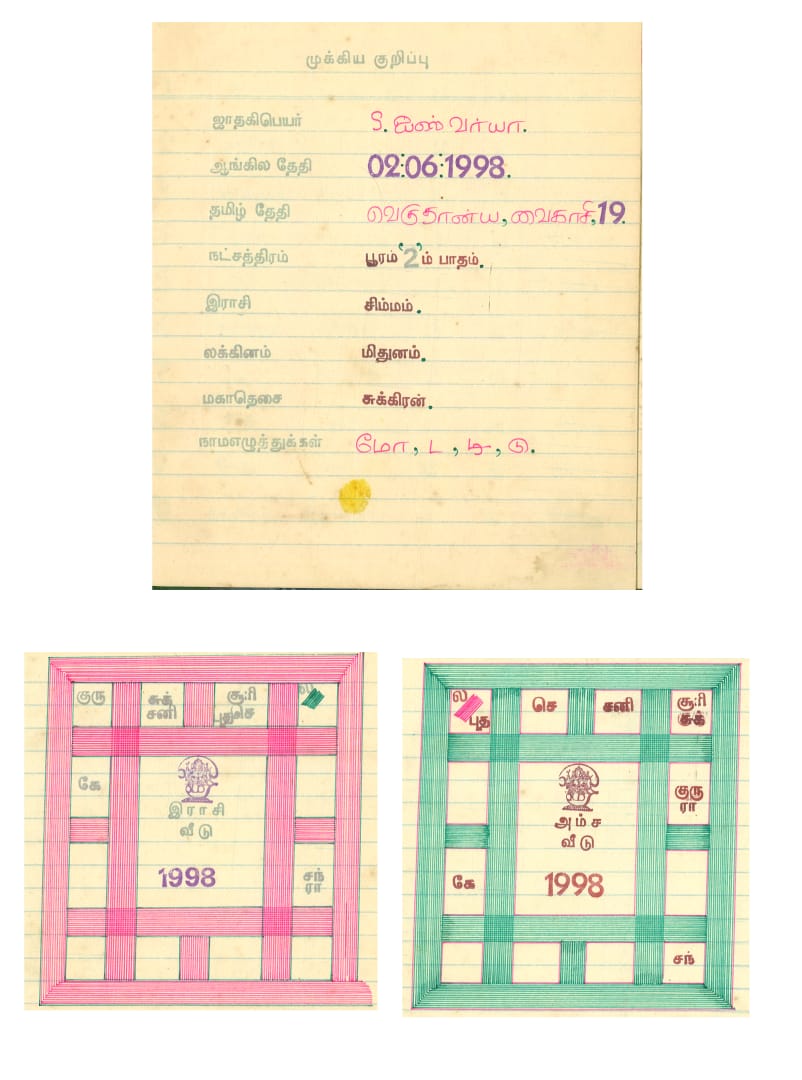 முக்கிய குறிப்பு
ஜாதகிபெயர் S. ஐஸ்வர்யா.
ஆங்கில தேதி 02:06:1998.
தமிழ் தேதி வெகுதான்ய, வைகாசி, 19.
நட்சத்திரம் பூரம் '2' ம் பாதம்.
இராசி சிம்மம்.
லக்கினம் மிதுனம்.
மகாதெசை சுக்கிரன்.
நாமஎழுத்துக்கள் மோ, ட, டி, டு.
குரு சுக் சனி சூரி புதுசெ ல
கே
இராசி
வீடு
1998
சந் ரா
ல புத செ சனி சூரி சுக்
குரு ரா
அம்ச
வீடு
கே 1998
சந்